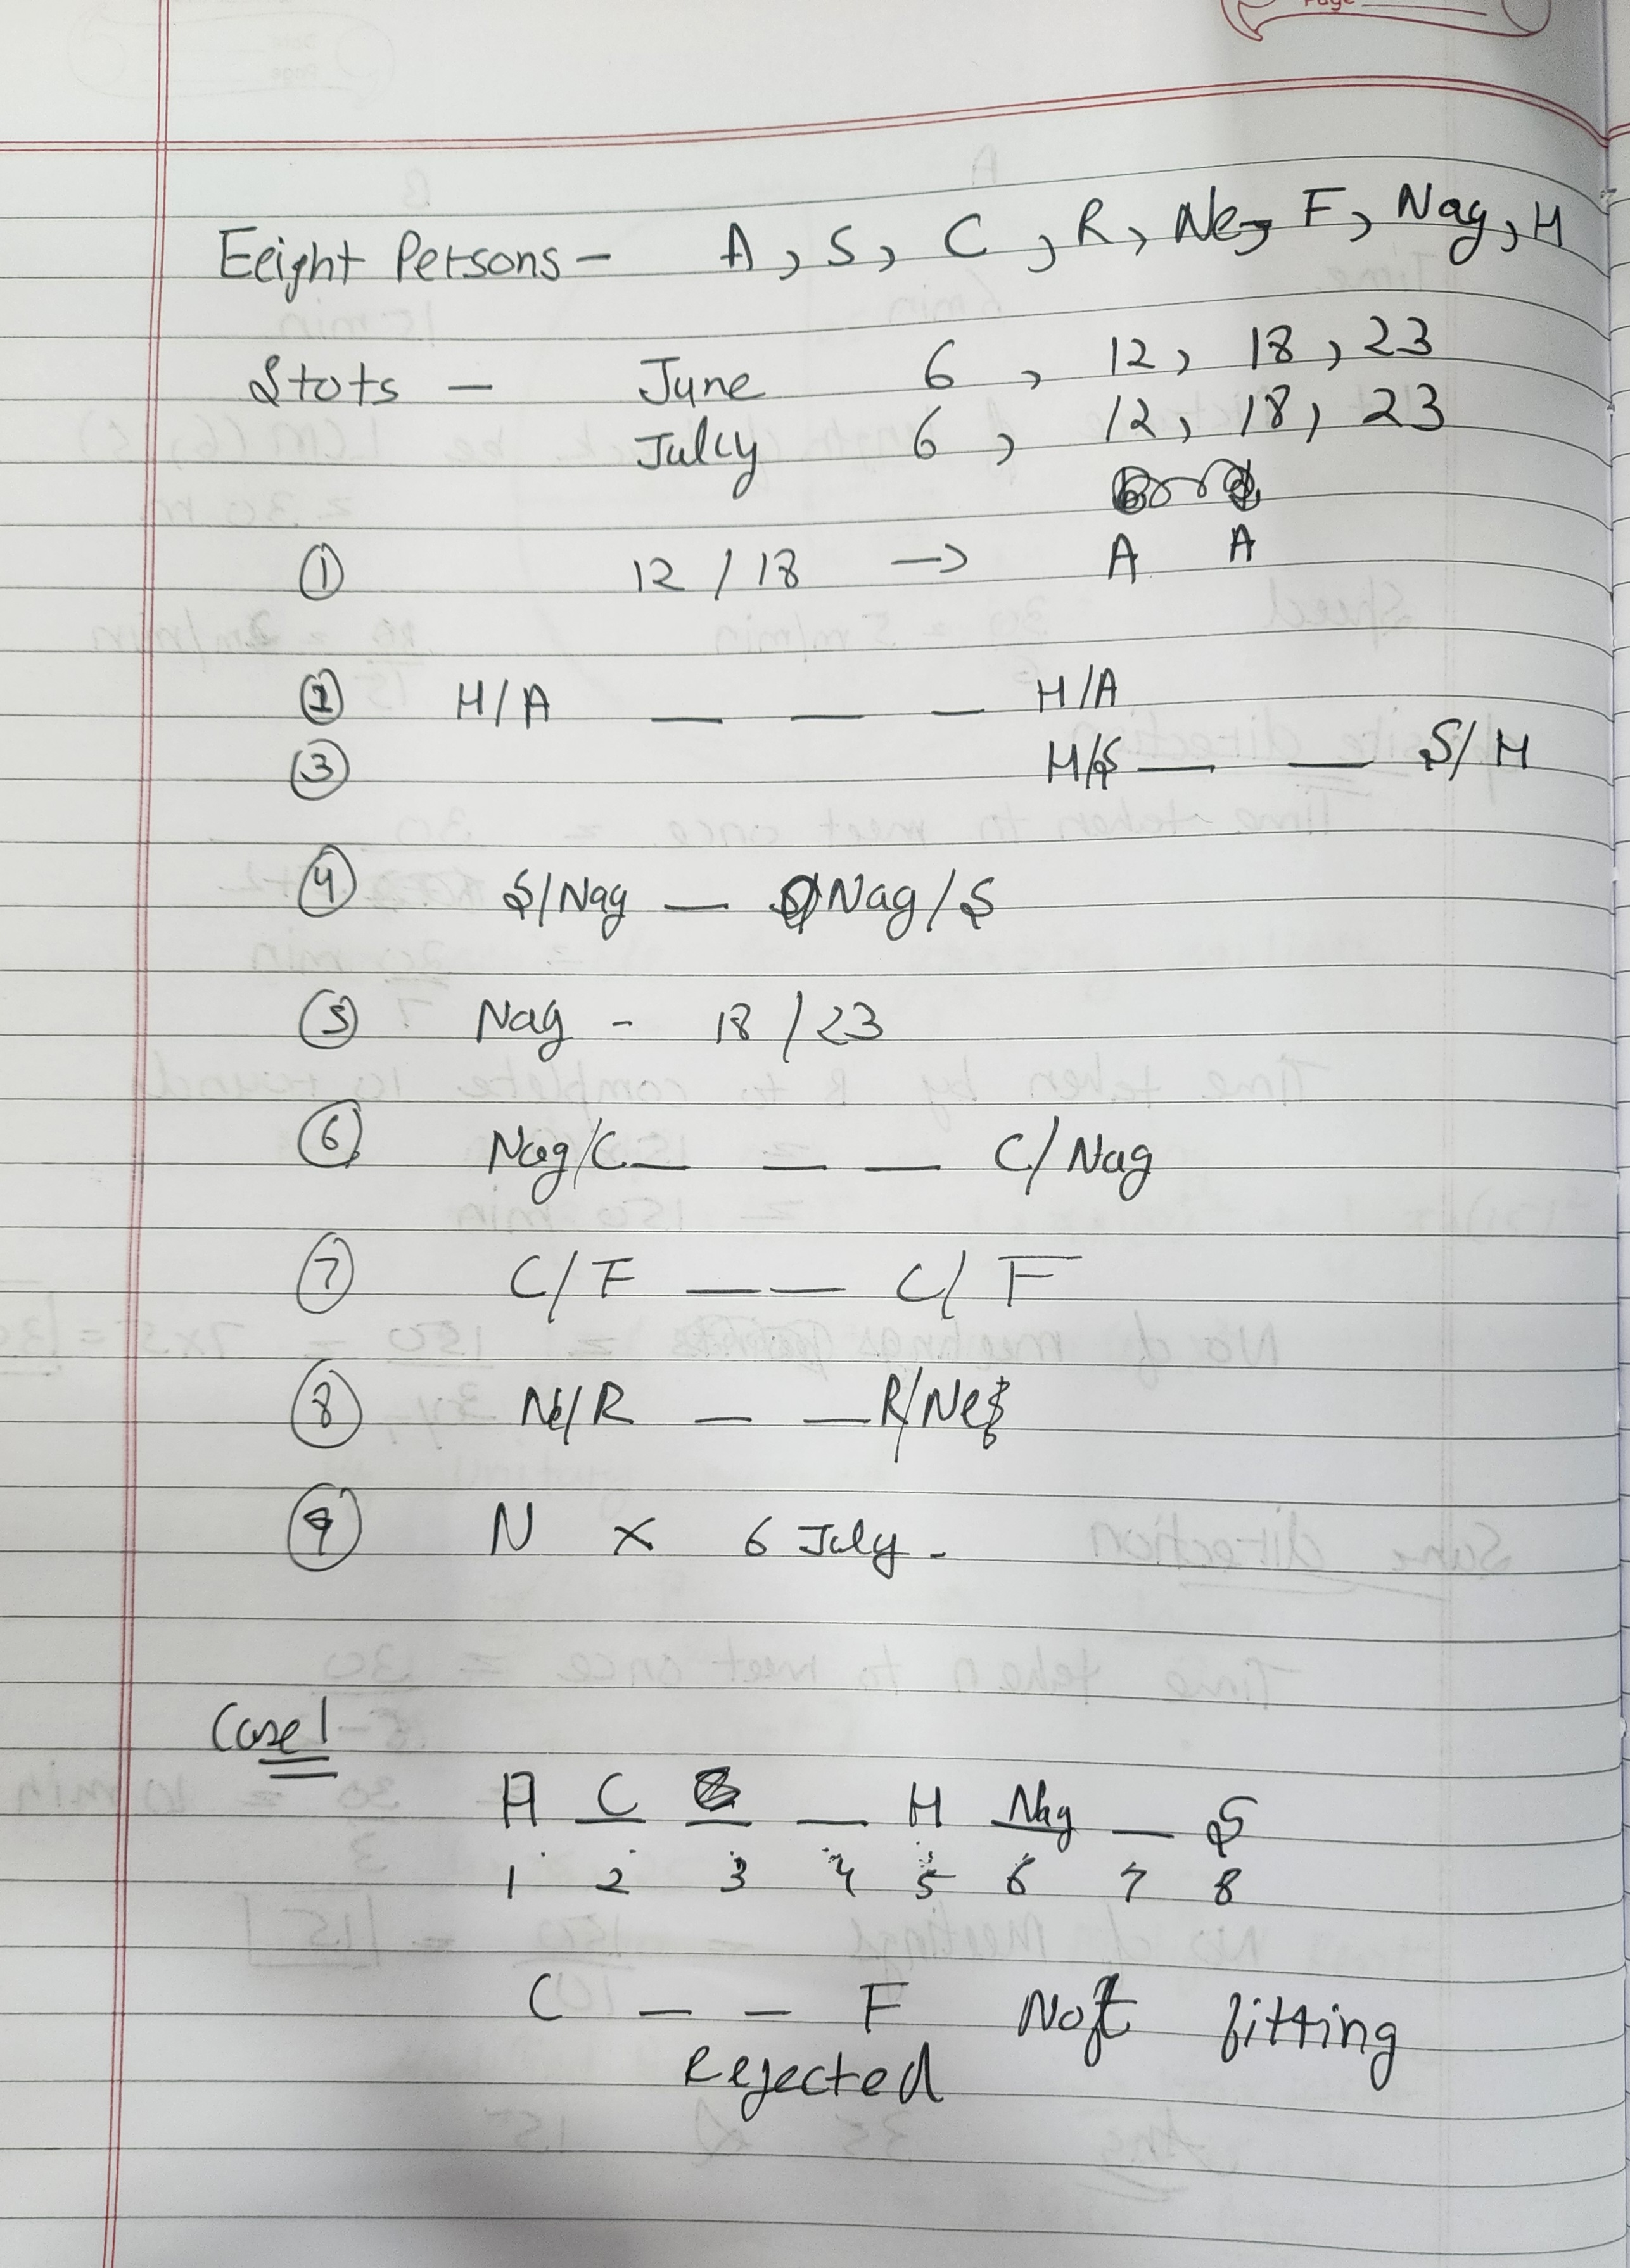 Page
Eeight Persons - A, S, C, R, Ne, F, Nag, H
Slots - June 6, 12, 18, 23
July 6, 12, 18, 23
① 12 / 18 → A A
② H/A _ _ _ H/A
③ H/S _ _ S/H
④ S/Nag _ Nag/S
⑤ Nag - 18/23
⑥ Nag/C _ _ _ C/Nag
⑦ C/F _ _ C/F
⑧ Ne/R _ _ R/Ne
⑨ N × 6 July.
Case 1
A C _ _ H Nag _ S
1 2 3 4 5 6 7 8
C _ _ F Not fitting
Rejected